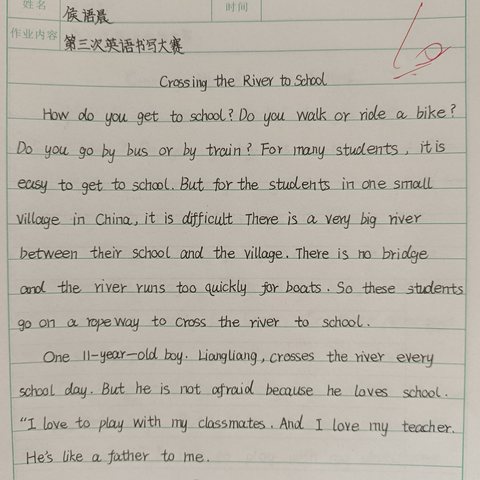 姓名 侯语晨 时间
作业内容 第三次英语书写大赛
Crossing the River to School
How do you get to school? Do you walk or ride a bike?
Do you go by bus or by train? For many students, it is
easy to get to school. But for the students in one small
village in China, it is difficult There is a very big river
between their school and the village. There is no bridge
and the river runs too quickly for boats. So these students
go on a ropeway to cross the river to school.
One 11-year-old boy. Liangliang, crosses the river every
school day. But he is not afraid because he loves school.
"I love to play with my classmates. And I love my teacher.
He's like a father to me.